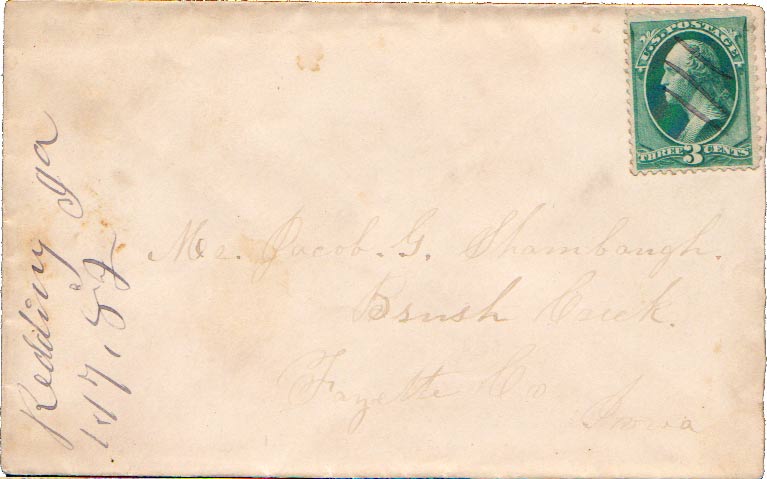 U.S. POSTAGE
THREE 3 CENTS
Redding Ia
1/17, 82
Mr. Jacob. G. Shambaugh.
Brush Creek.
Fayette Co
Iowa